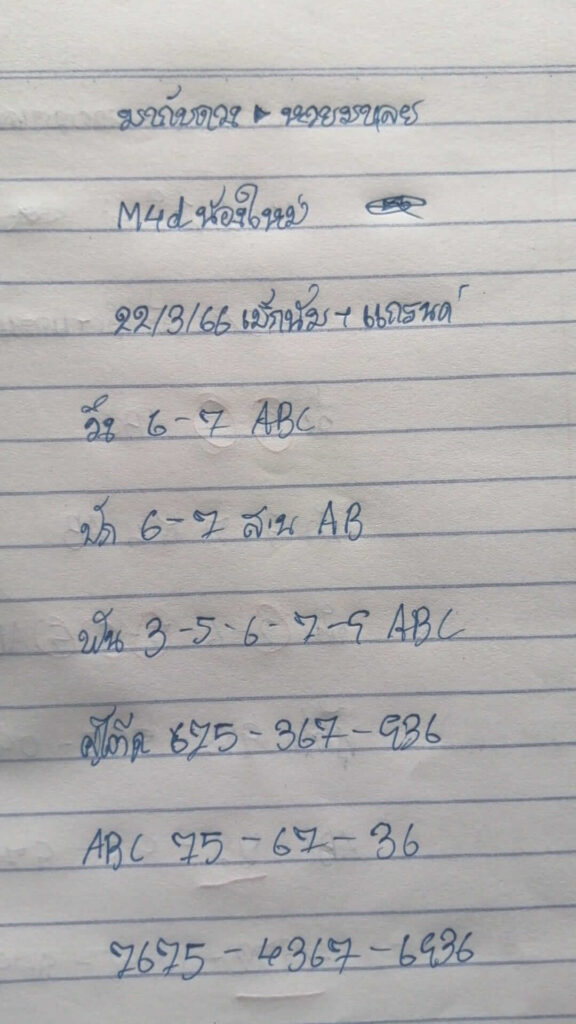 มากับดวง นายมนเลย
M4d น้องใหม่
22/3/66 แม็กนั่ม + แกรนด์
วิ่ง 6-7 ABC
ปัก 6-7 ส.บ AB
ฟัน 3-5-6-7-9 ABC
675-367-936
ABC 75-67-36
7675-4367-6936